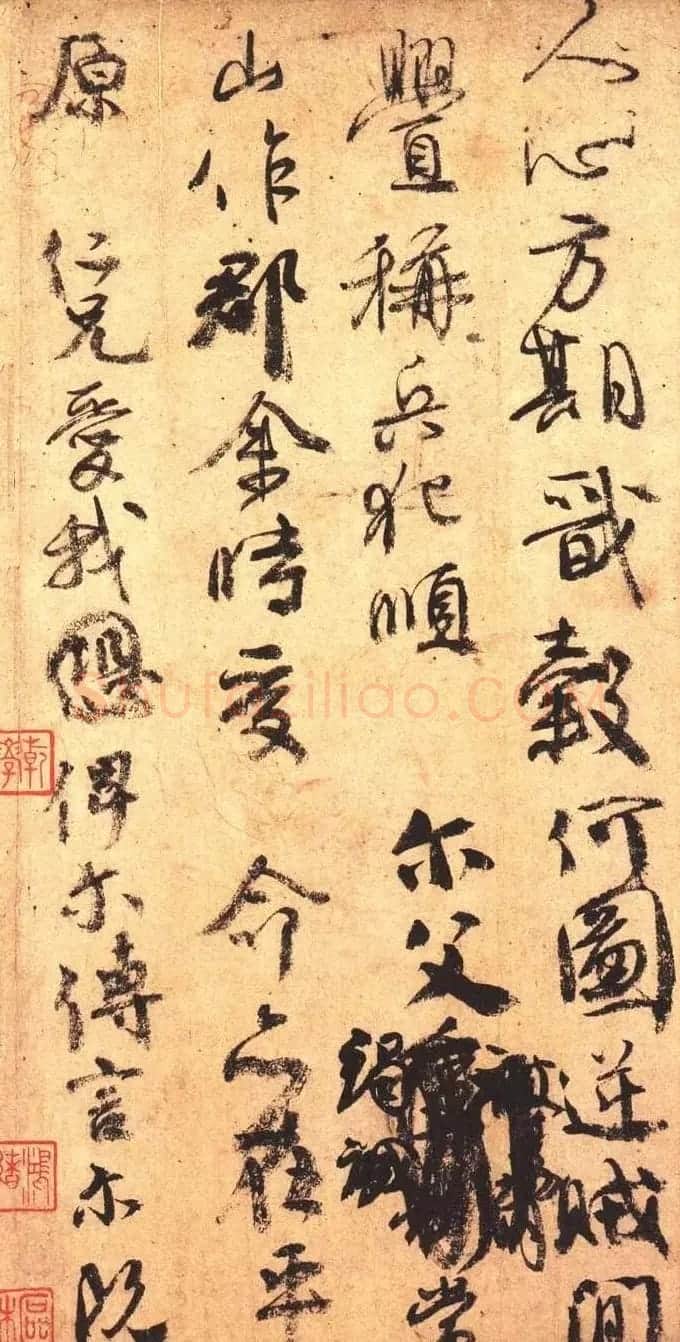 人心方期戩穀何圖逆賊間
舋稱兵犯順 尔父竭誠常
山作郡余時受 命亦在平
原 仁兄愛我俾尔傳言尔既
乾學
shufaziliao.com